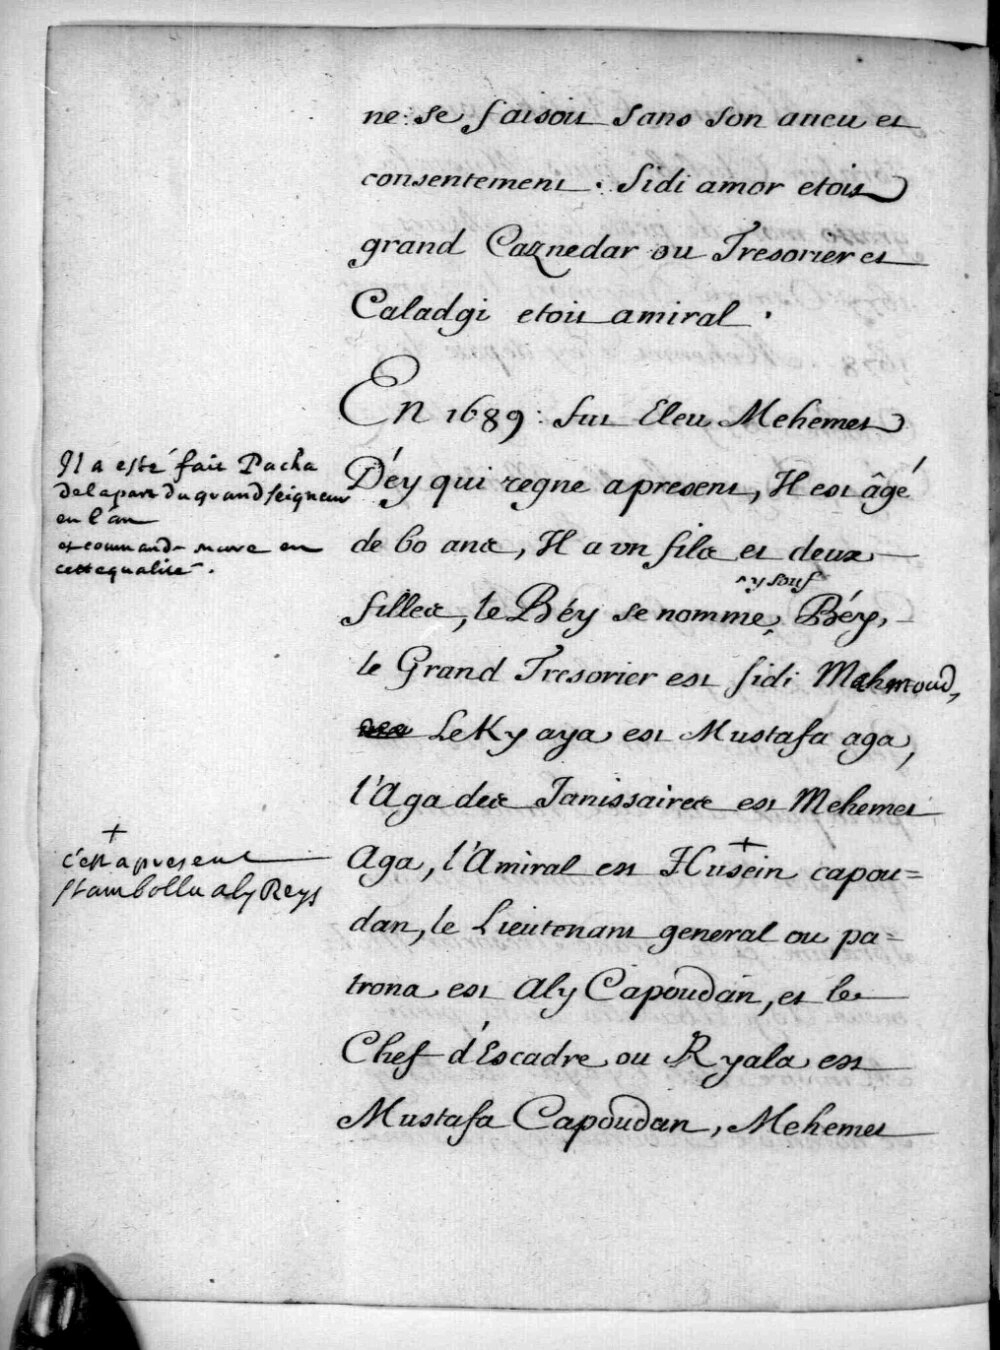 ne se faisoit sans son aueu et
consentement. Sidi amor etoit
grand Caznedar ou Tresorier et
Caladgi etoit amiral.
En 1689: fut Eleu Mehemet
Déy qui regne apresent, Il est âgé
de 60 ans, Il a vn fils et deux
filles, le Béy se nomme ysouf Béy,
le Grand Tresorier est sidi Mahmoud,
Le Kyaya est Mustafa aga,
l'Aga des Janissaires est Mehemet
Aga, l'Amiral est + Husein capou=
dan, le Lieutenant general ou pa=
trona est Aly Capoudan, et le
Chef d'Escadre ou Ryala est
Mustafa Capoudan, Mehemet
Il a esté fait Pacha
de la part du grand seigneur
en l'an
et commande en
cette qualité.
+
c'est apresent
stambollu aly Reys